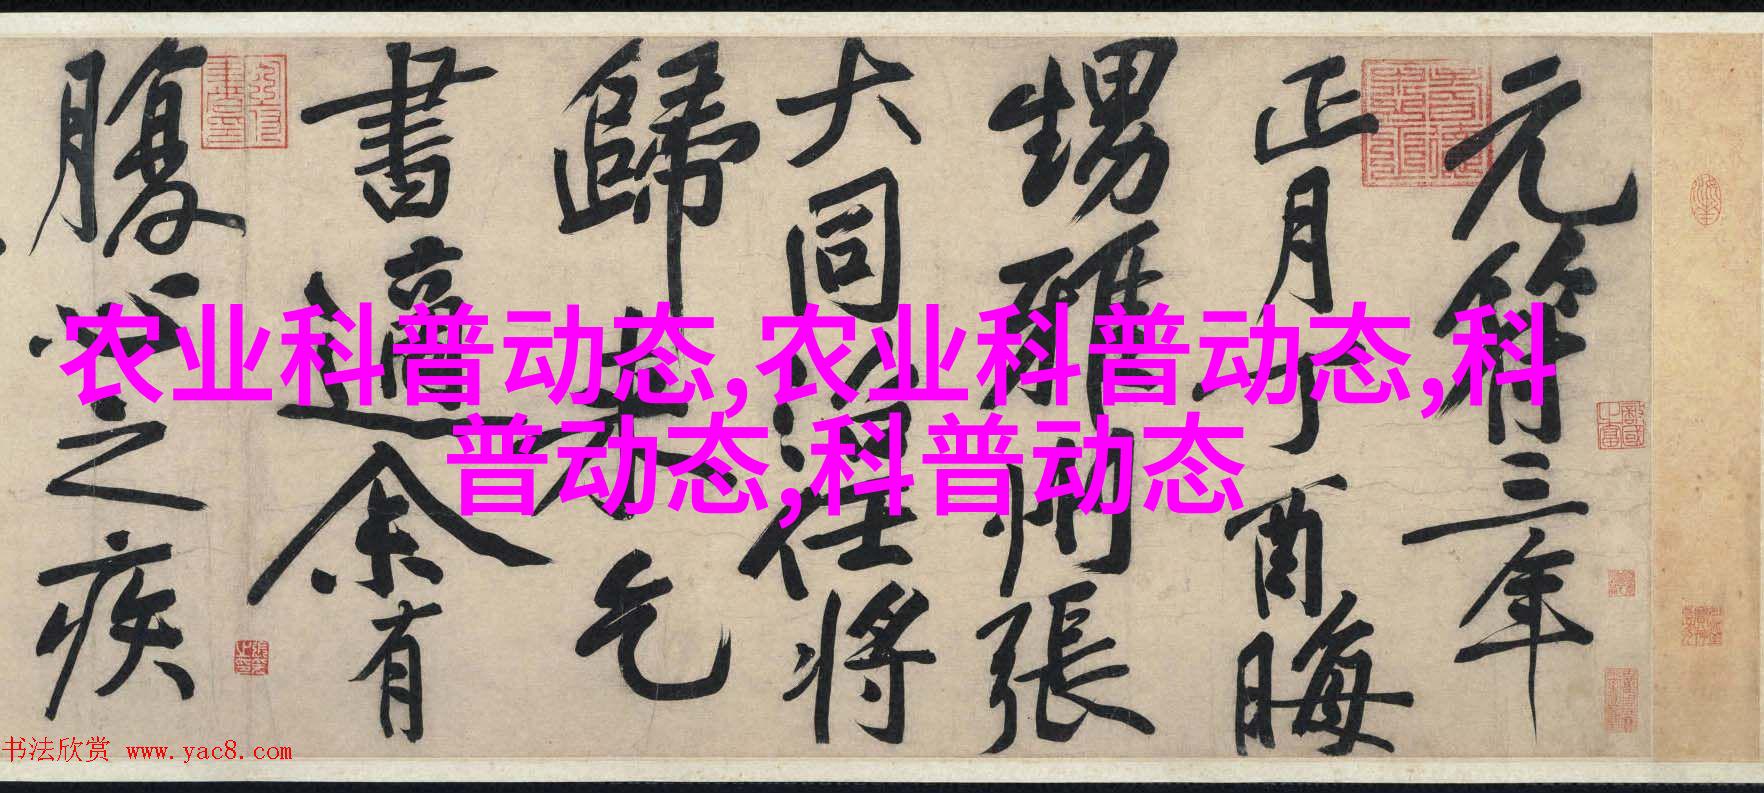 元符三年
正月丁酉晦
甥雅州張
大同治任將
歸來乞
書適余有
腹心之疾
农业科普动态,农业科普动态,科
普动态,科普动态
书法欣赏 www.yac8.com